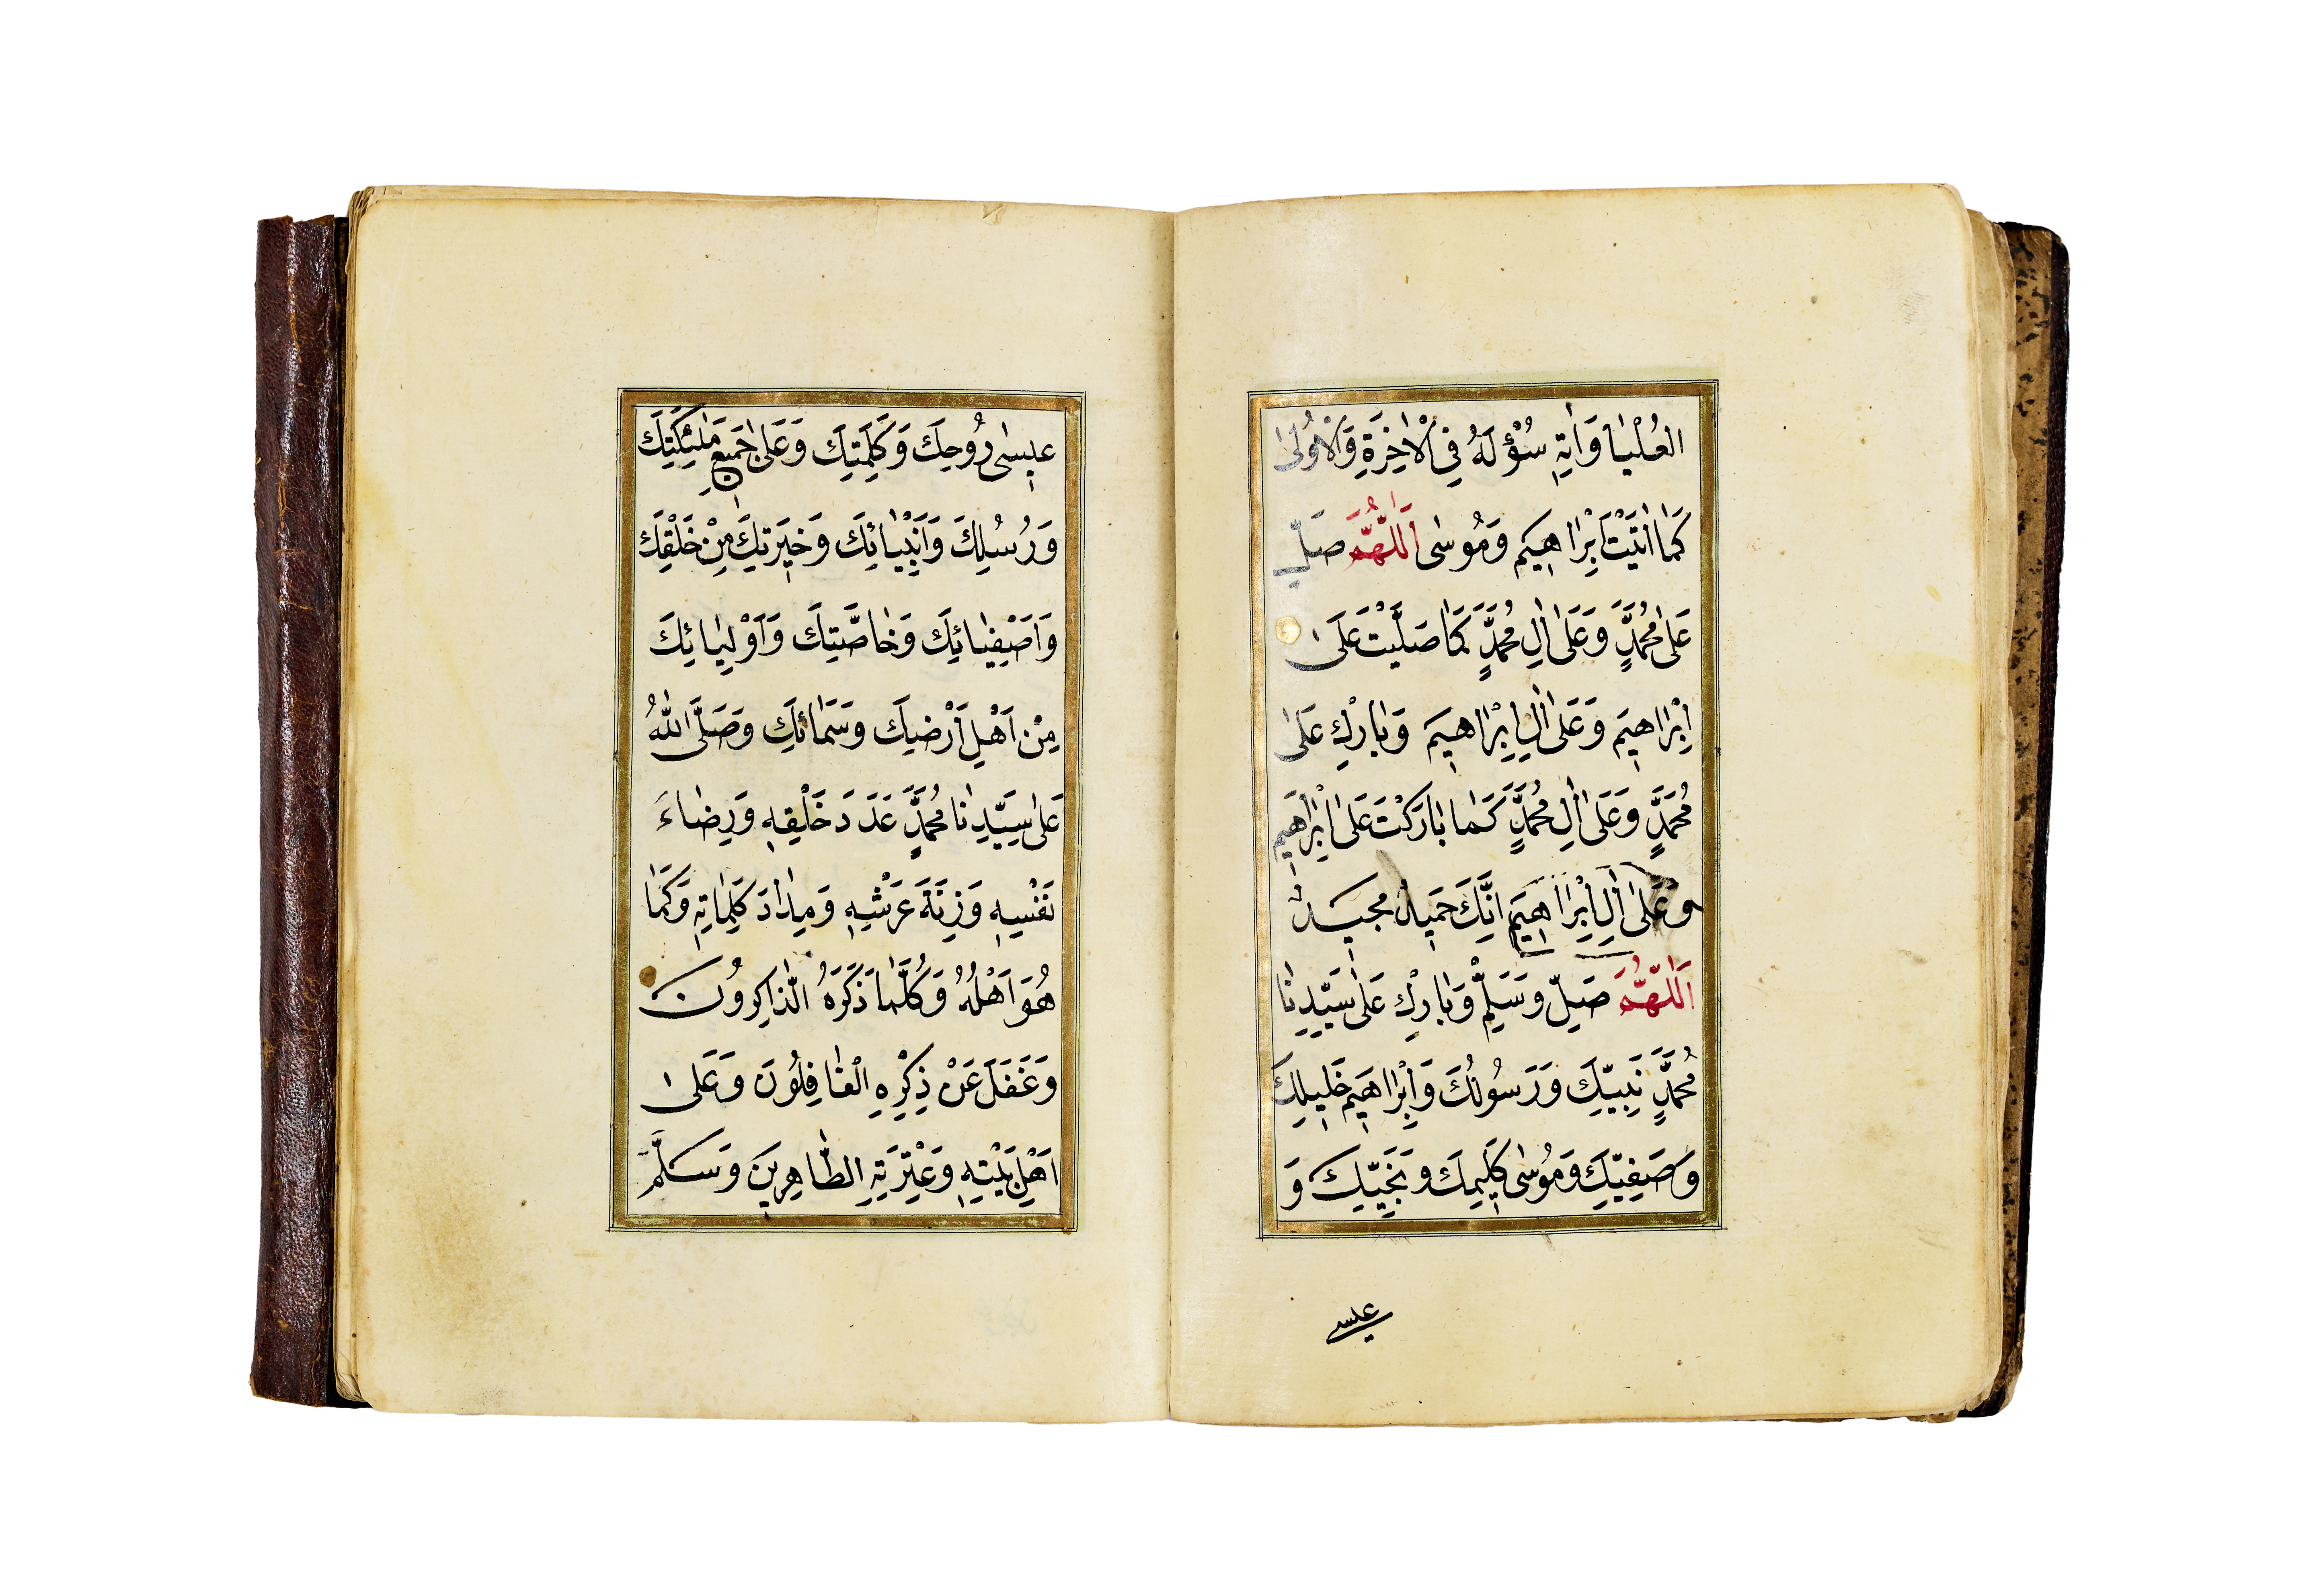 العُلْيَا وَاٰتِهٖ سُؤْلَهُ فِي الْاٰخِرَةِ وَالْاُولٰى
كَمَا اٰتَيْتَ اِبْرَاهِيمَ وَمُوسٰى اَللّٰهُمَّ صَلِّ
عَلٰى مُحَمَّدٍ وَعَلٰى اٰلِ مُحَمَّدٍ كَمَا صَلَّيْتَ عَلٰى
اِبْرَاهِيمَ وَعَلٰى اٰلِ اِبْرَاهِيمَ وَبَارِكْ عَلٰى
مُحَمَّدٍ وَعَلٰى اٰلِ مُحَمَّدٍ كَمَا بَارَكْتَ عَلٰى اِبْرَاهِيمَ
وَعَلٰى اٰلِ اِبْرَاهِيمَ اِنَّكَ حَمِيدٌ مَجِيدٌ
اَللّٰهُمَّ صَلِّ وَسَلِّمْ وَبَارِكْ عَلٰى سَيِّدِنَا
مُحَمَّدٍ نَبِيِّكَ وَرَسُولِكَ وَاِبْرَاهِيمَ خَلِيلِكَ
وَصَفِيِّكَ وَمُوسٰى كَلِيمِكَ وَنَجِيِّكَ وَ
عيسى
عِيسٰى رُوحِكَ وَكَلِمَتِكَ وَعَلٰى جَمِيعِ مَلٰئِكَتِكَ
وَرُسُلِكَ وَاَنْبِيَائِكَ وَخِيَرَتِكَ مِنْ خَلْقِكَ
وَاَصْفِيَائِكَ وَخَاصَّتِكَ وَاَوْلِيَائِكَ
مِنْ اَهْلِ اَرْضِكَ وَسَمَائِكَ وَصَلَّى اللّٰهُ
عَلٰى سَيِّدِنَا مُحَمَّدٍ عَدَدَ خَلْقِهٖ وَرِضَاءَ
نَفْسِهٖ وَزِنَةَ عَرْشِهٖ وَمِدَادَ كَلِمَاتِهٖ وَكَمَا
هُوَ اَهْلُهُ وَكُلَّمَا ذَكَرَهُ الذَّاكِرُونَ
وَغَفَلَ عَنْ ذِكْرِهِ الْغَافِلُونَ وَعَلٰى
اَهْلِ بَيْتِهٖ وَعِتْرَتِهِ الطَّاهِرِينَ وَسَلَّمَ